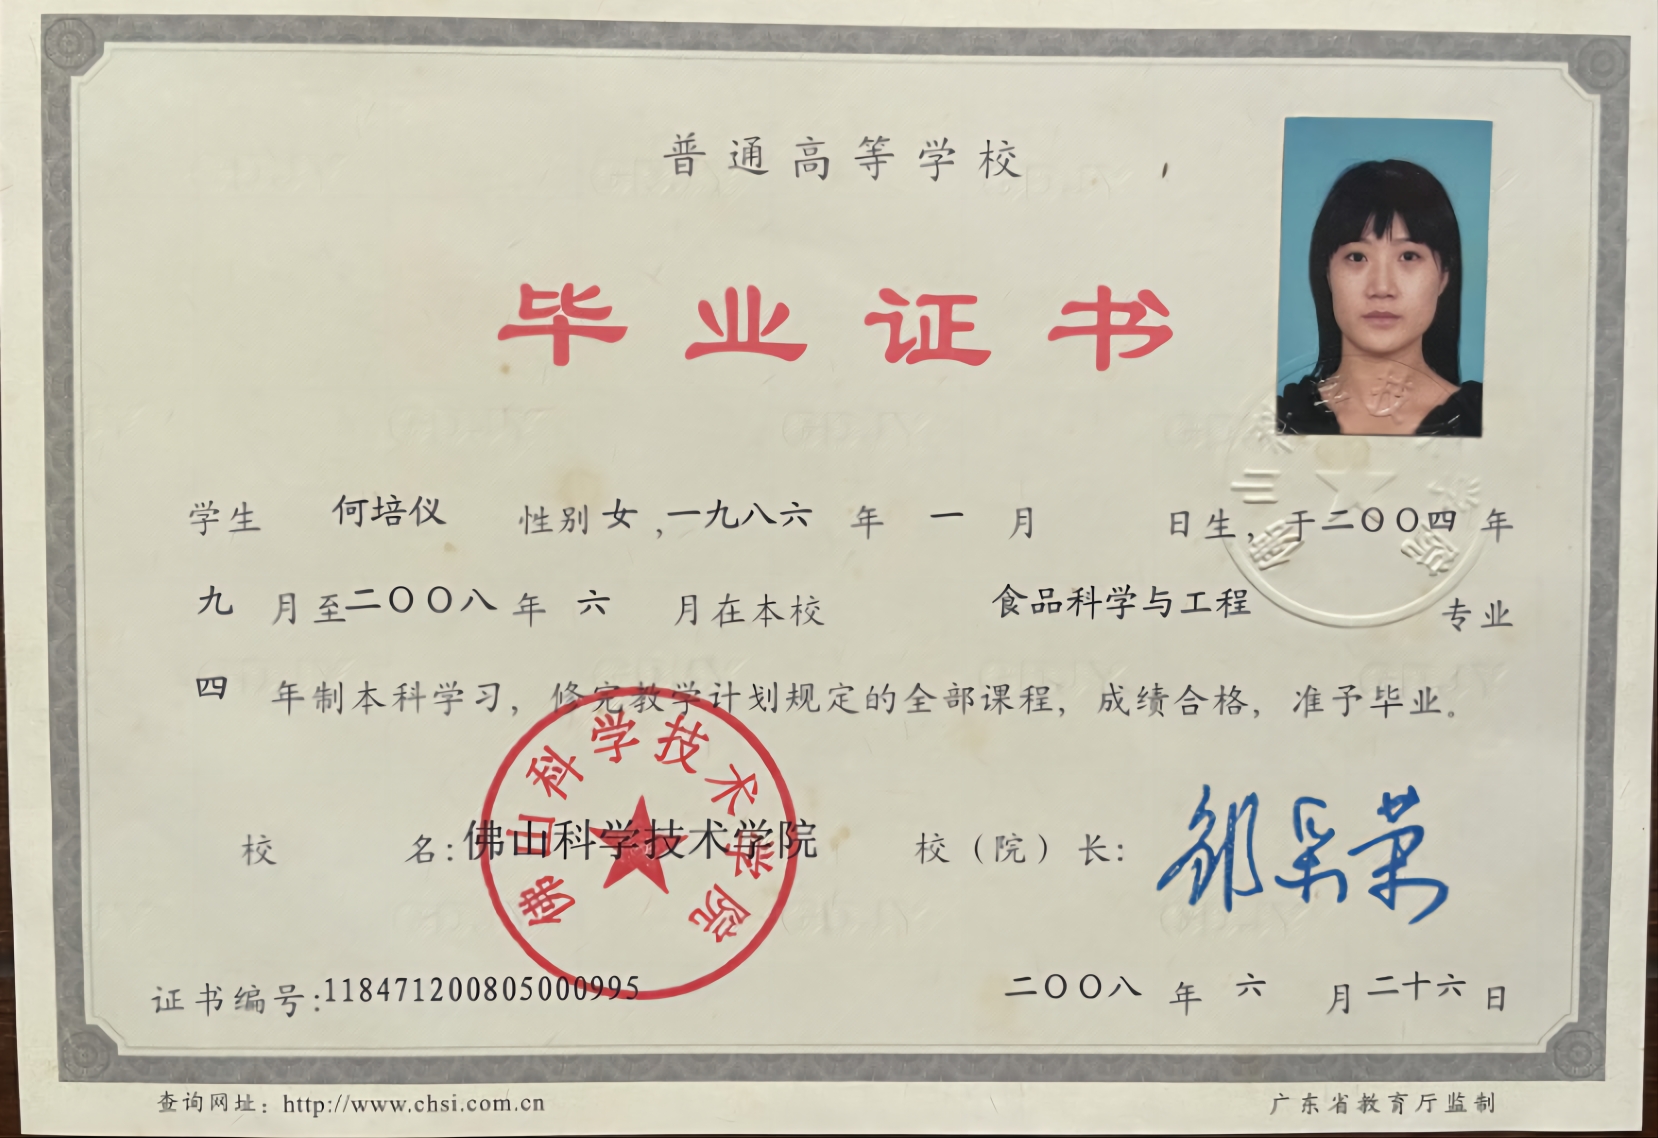 普通高等学校
毕业证书
学生 何培仪 性别 女,一九八六 年 一 月 日生，于二〇〇四 年
九 月至二〇〇八 年 六 月在本校 食品科学与工程 专业
四 年制本科学习，修完教学计划规定的全部课程，成绩合格，准予毕业。
校 名:佛山科学技术学院 校（院）长:
佛山科学技术学院
证书编号:118471200805000995 二〇〇八 年 六 月 二十六 日
查询网址：http://www.chsi.com.cn 广东省教育厅监制